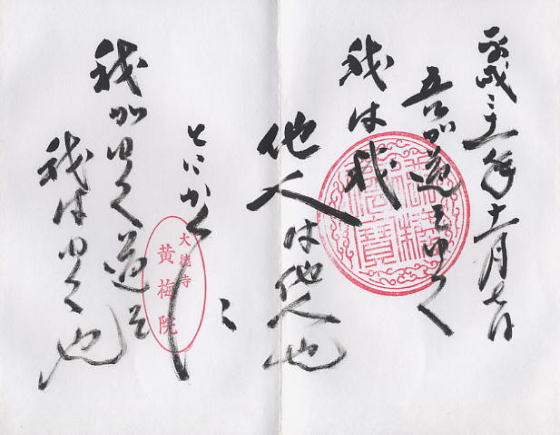 平成二十一年十一月七日
吾が道をゆく
我は我
他人は他人也
とにかく
我がゆく道を
我はゆく也
大徳寺
黄梅院